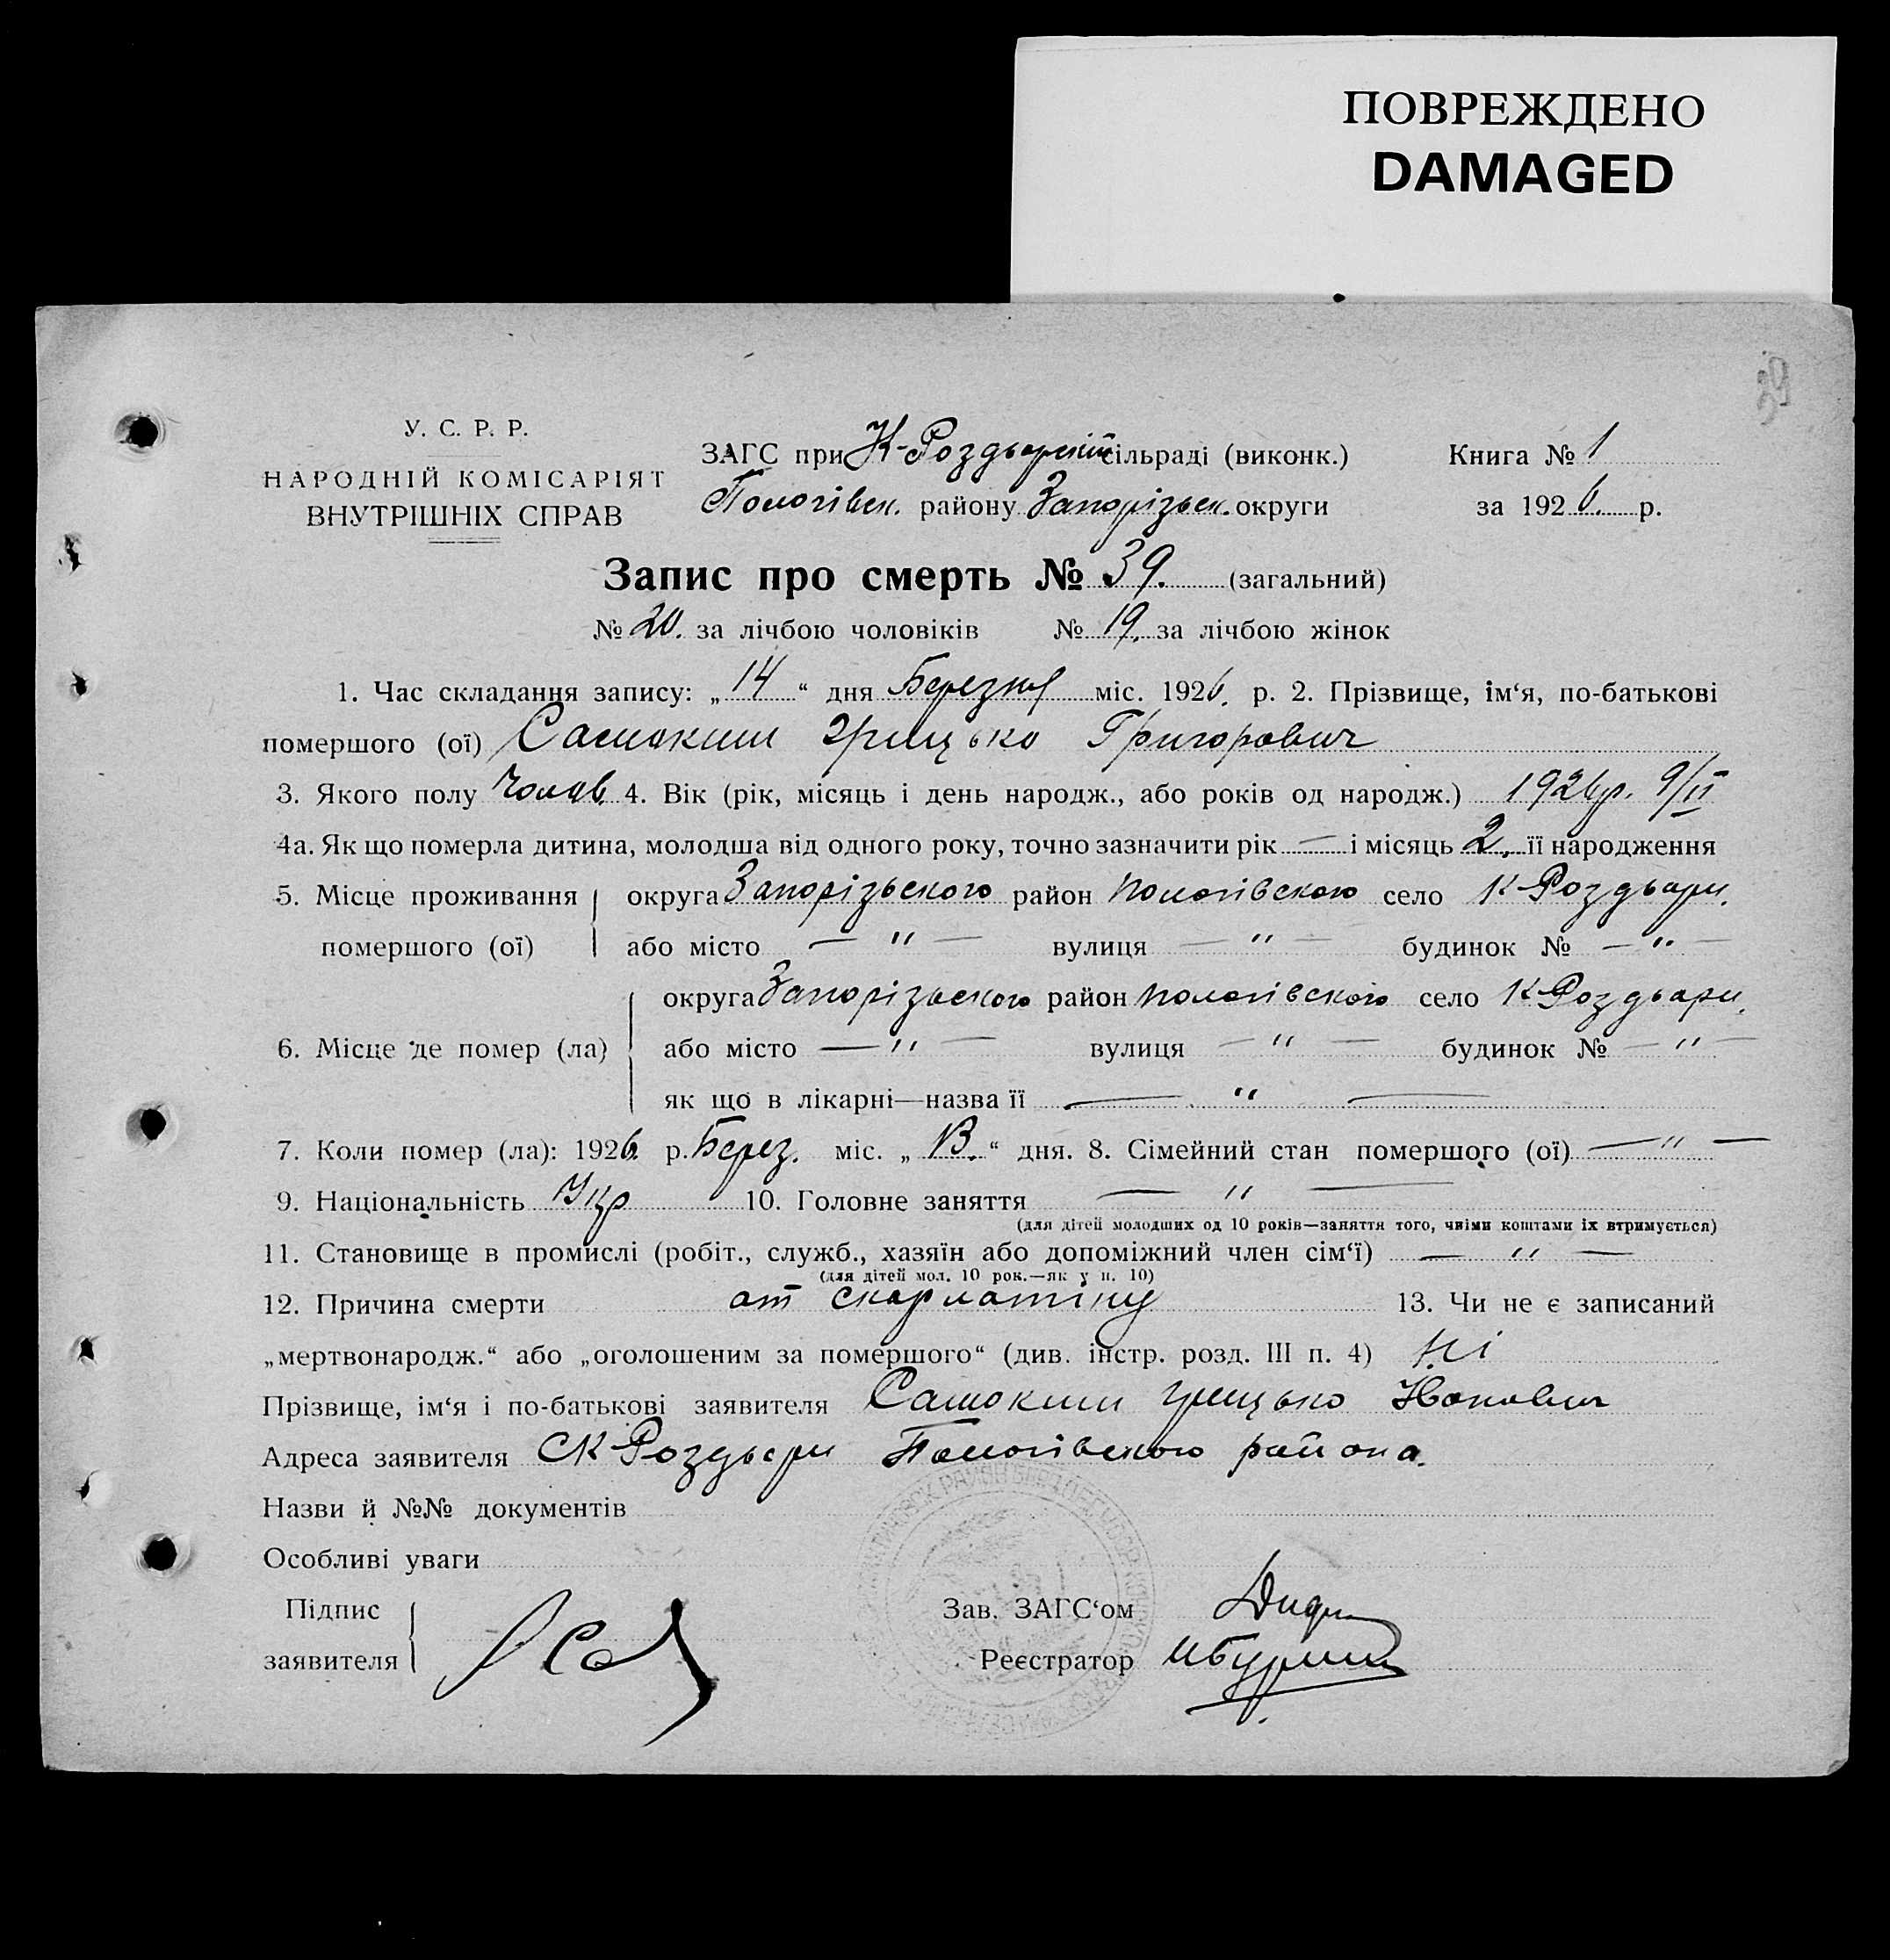 ПОВРЕЖДЕНО
DAMAGED
39
У. С. Р. Р.
НАРОДНІЙ КОМІСАРІЯТ
ВНУТРІШНІХ СПРАВ
ЗАГС при К-Роздорській сільраді (виконк.)
Пологівск. району Запорізьск. округи
Книга № 1
за 1926. р.
Запис про смерть № 39. (загальний)
№ 20. за лічбою чоловіків № 19. за лічбою жінок
1. Час складання запису: „14“ дня Березня міс. 1926. р. 2. Прізвище, ім‘я, по-батькові
помершого (ої) Самокиш Грицько Григорович
3. Якого полу Чолов. 4. Вік (рік, місяць і день народж., або років од народж.) 1926р. 9/II
4а. Як що померла дитина, молодша від одного року, точно зазначити рік — і місяць 2. її народження
5. Місце проживання округа Запорізьского район Пологівского село К-Роздьори.
помершого (ої) або місто — " — вулиця — " — будинок № — " —
округа Запорізьского район Пологівского село К-Роздьори.
6. Місце де помер (ла) або місто — " — вулиця — " — будинок № — " —
як що в лікарні—назва її — " —
7. Коли помер (ла): 1926. р. Берез. міс. „13.“ дня. 8. Сімейний стан помершого (ої) — " —
9. Національність Укр 10. Головне заняття — " —
(для дітей молодших од 10 років—заняття того, чиїми коштами їх втримується)
11. Становище в промислі (робіт., служб., хазяїн або допоміжний член сім‘ї) — " —
(для дітей мол. 10 рок.—як у п. 10)
12. Причина смерти от скарлатіни 13. Чи не є записаний
„мертвонародж.“ або „оголошеним за помершого“ (див. інстр. розд. III п. 4) Ні
Прізвище, ім‘я і по-батькові заявителя Самокиш Грицько
Адреса заявителя С К-Роздьори Пологівского района.
Назви й №№ документів
Особливі уваги
Підпис
заявителя
Зав. ЗАГС‘ом
Реєстратор